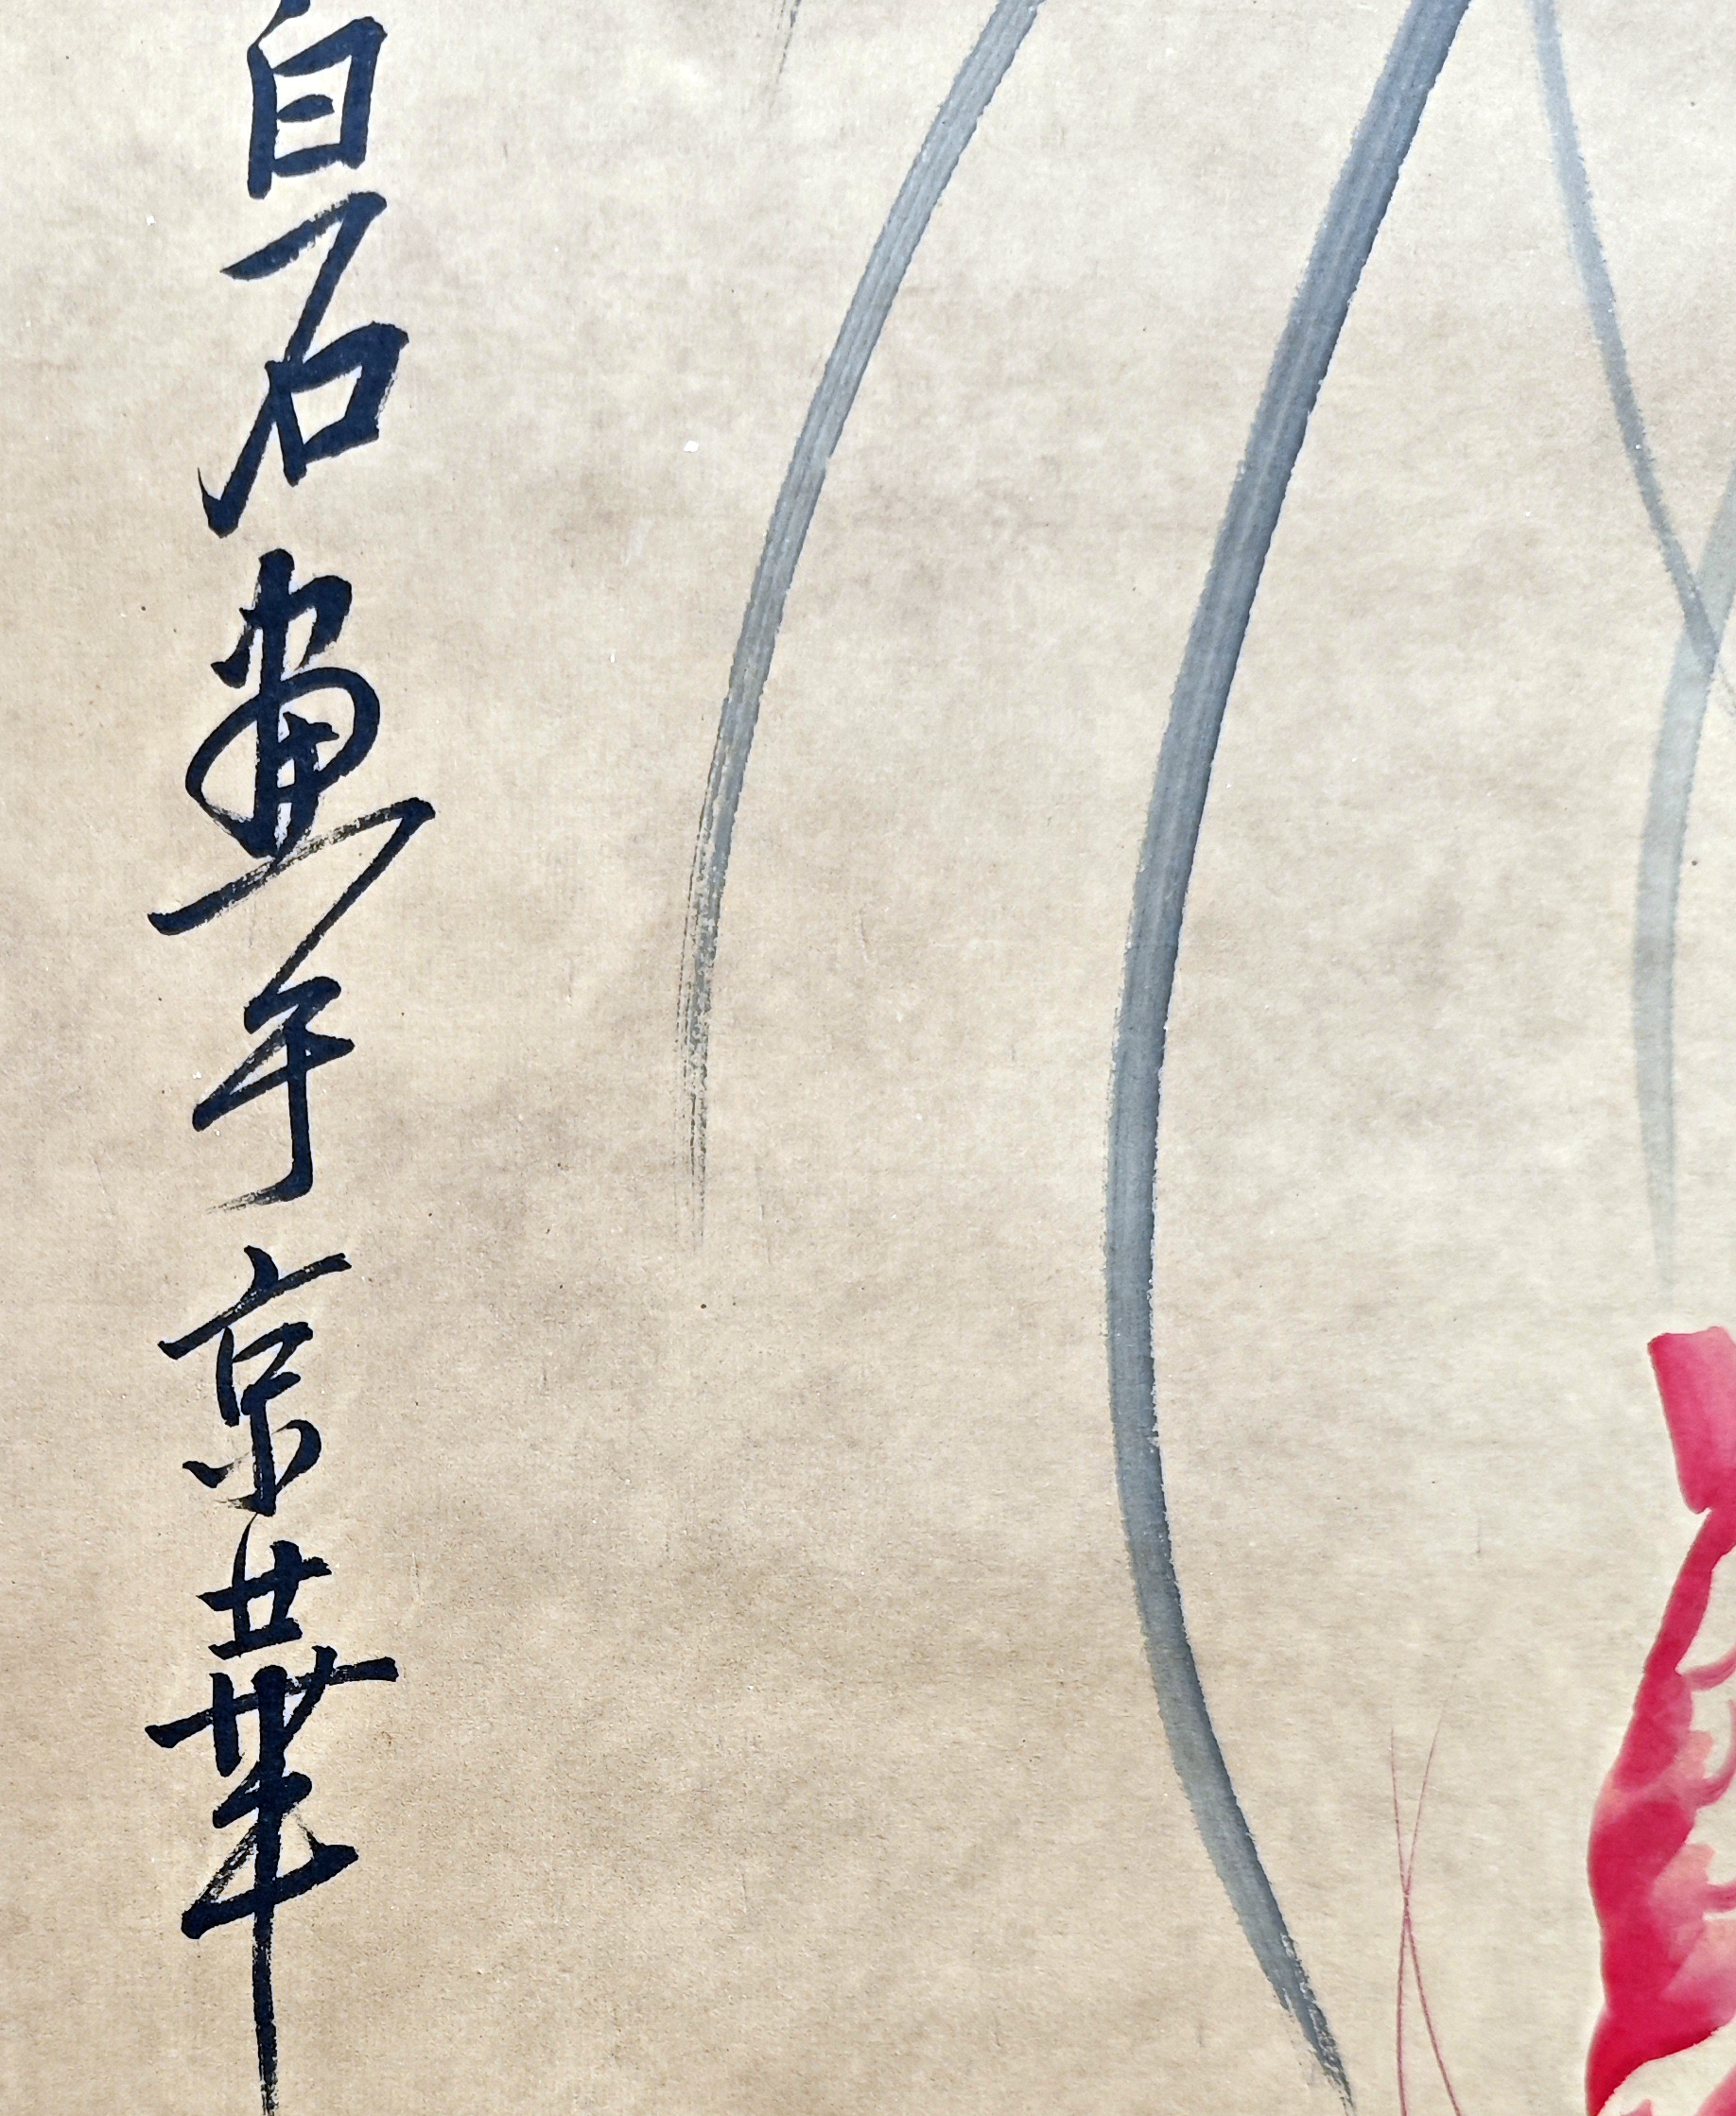 白石画于京華